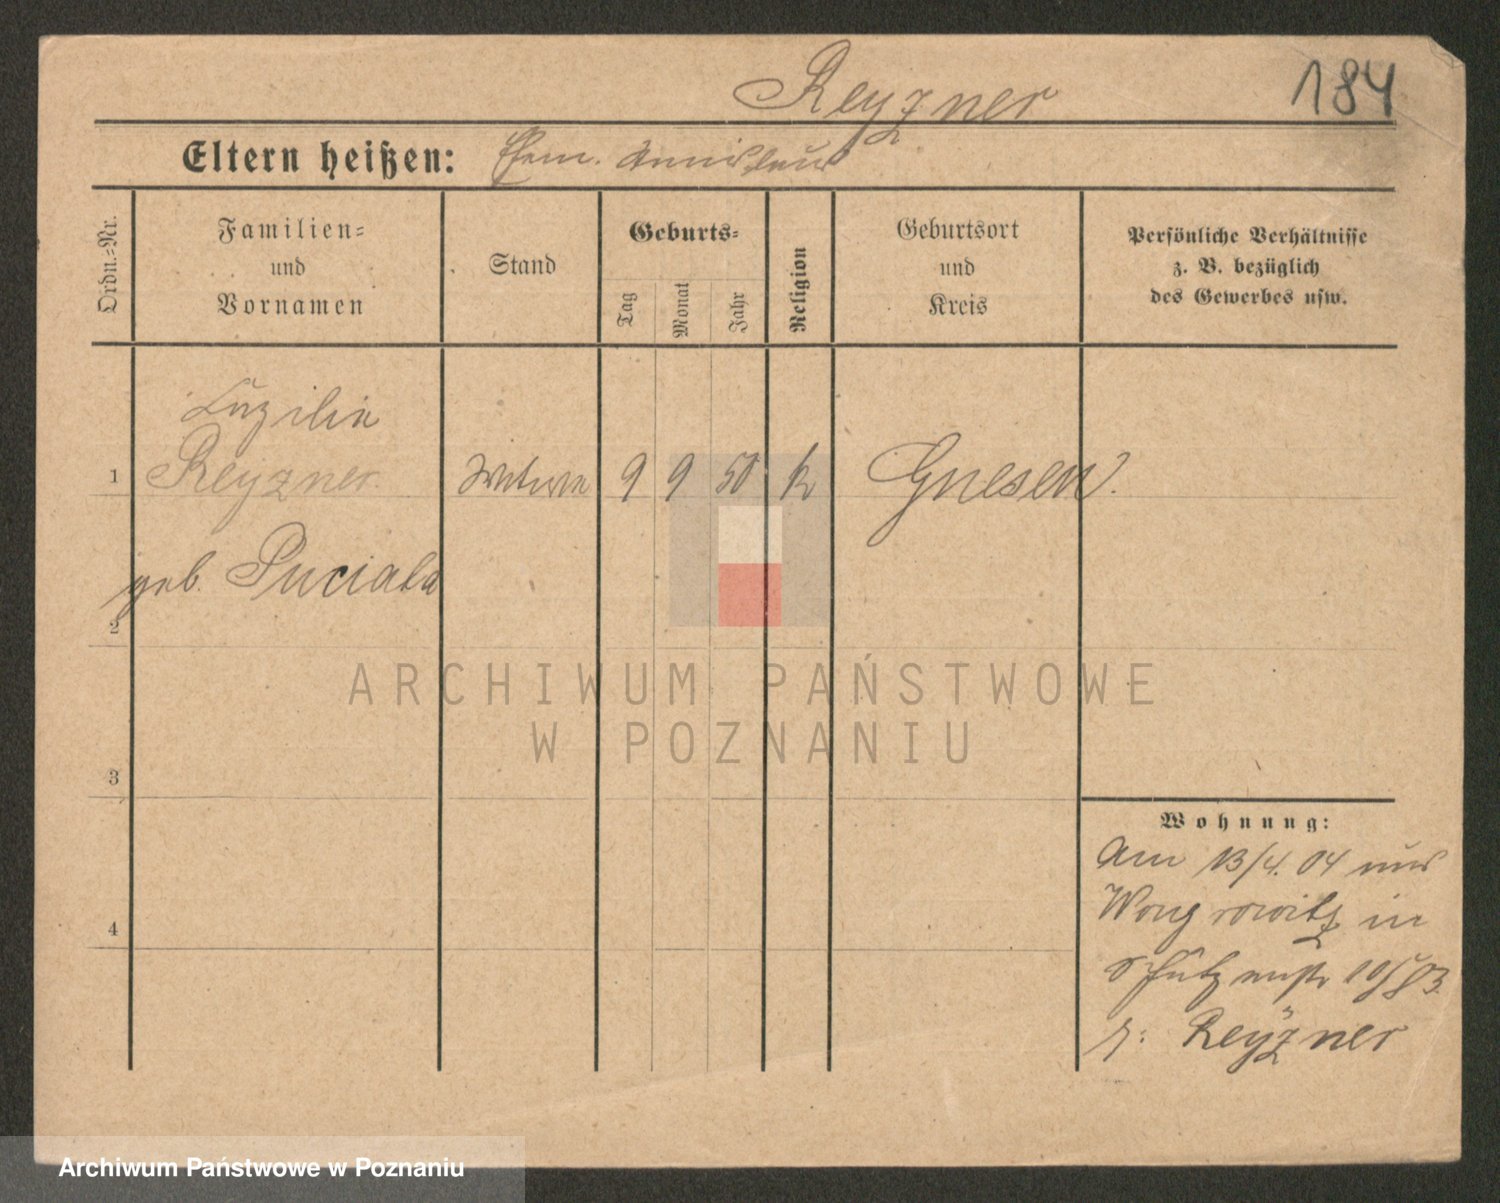 Reyzner
184
Eltern heißen:
Ordn.-Nr.
Familien-
und
Vornamen
Stand
Geburts-
Tag
Monat
Jahr
Religion
Geburtsort
und
Kreis
Persönliche Verhältnisse
z. B. bezüglich
des Gewerbes usw.
Cäzilie
1 Reyzner Witwe 9 9 50 k Gnesen.
geb. Puciata
2
3
4
Wohnung:
Am 13/4. 04 aus
Wongrowitz in
Schützenstr
b: Reyzner
ARCHIWUM PAŃSTWOWE
W POZNANIU
Archiwum Państwowe w Poznaniu